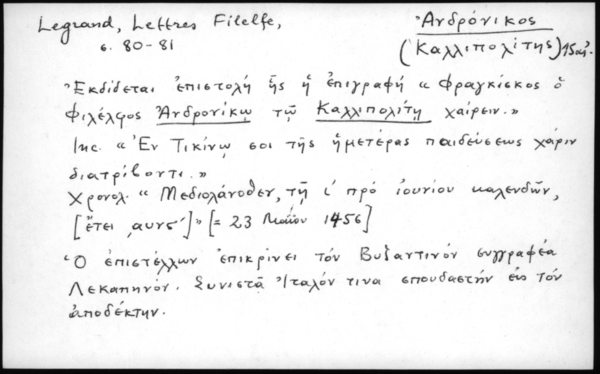 Legrand, Lettres Filelfe, Ἀνδρόνικος
σ. 80-81 (Καλλιπολίτης) 15 αἰ.
Ἐκδίδεται ἐπιστολή ἧς ἡ ἐπιγραφή «Φραγκίσκος ὁ
Φιλέλφος Ἀνδρονίκῳ τῷ Καλλιπολίτῃ χαίρειν.»
Inc. «Ἐν Τικίνῳ σοι τῆς ἡμετέρας παιδεύσεως χάριν
διατρίβοντι.»
Χρονολ. «Μεδιολάνοθεν, τῇ ι΄ πρό ἰουνίου καλενδῶν,
[ἔτει ͵αυνς΄]» [= 23 Μαΐου 1456]
Ὁ ἐπιστέλλων ἐπικρίνει τόν Βυζαντινόν συγγραφέα
Λεκαπηνόν. Συνιστᾶ Ἰταλόν τινα σπουδαστήν εἰς τόν
ἀποδέκτην.